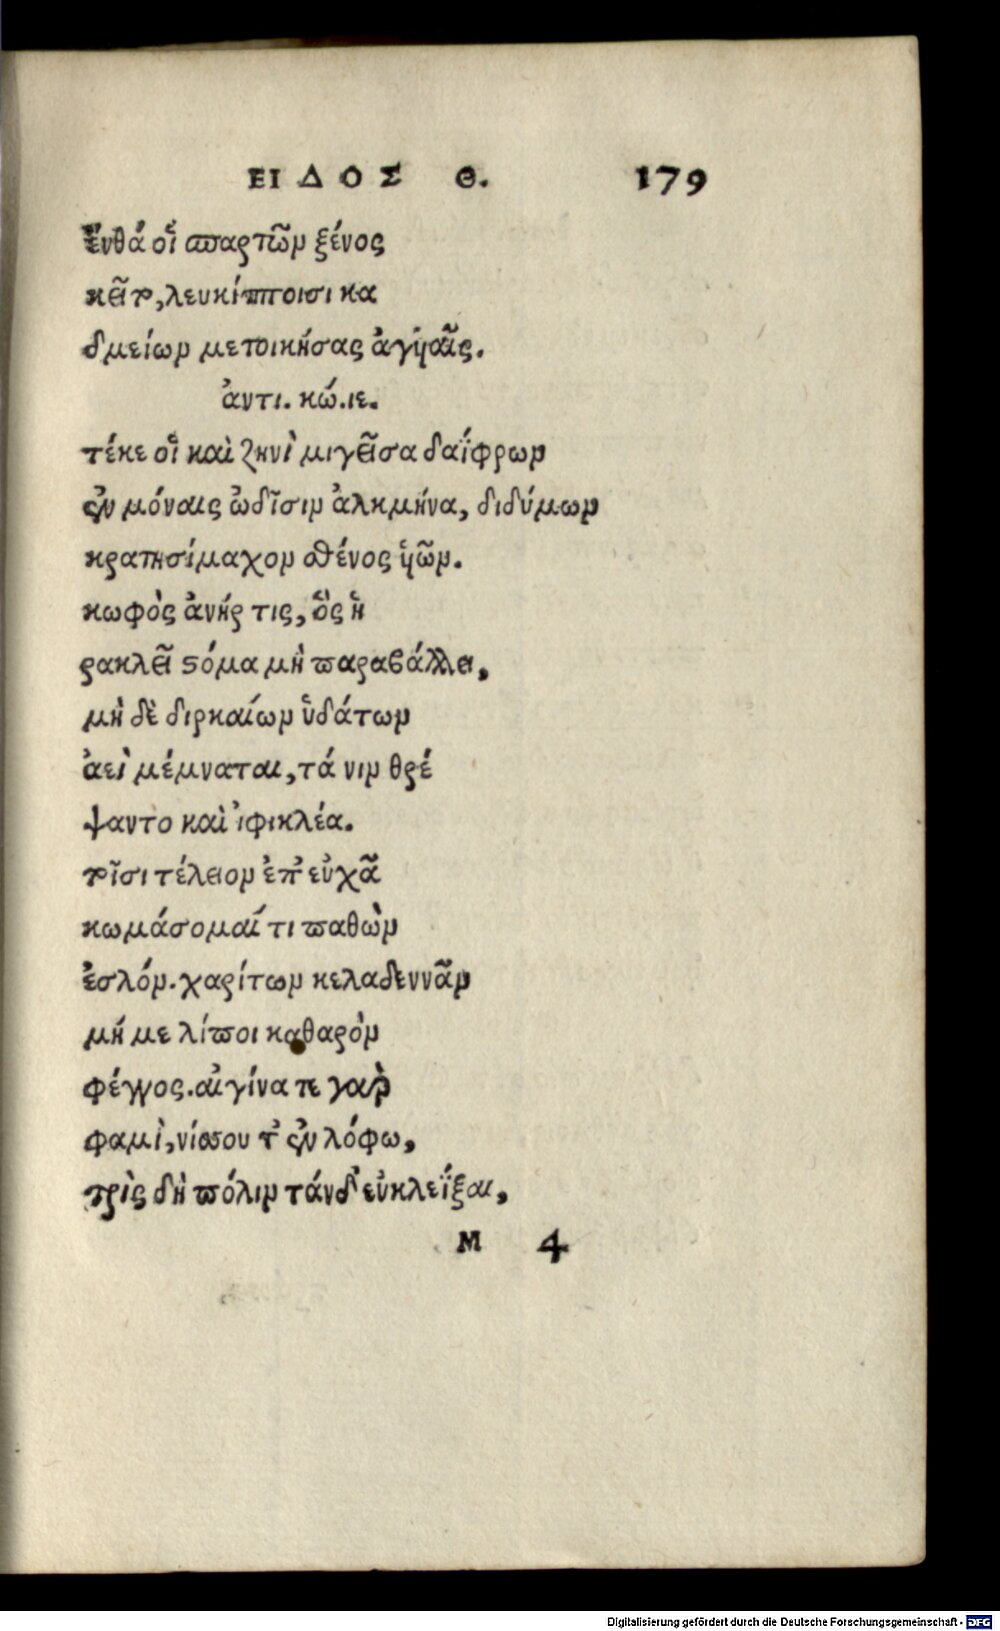 ΕΙΔΟΣ Θ. 179
ἔνθά οἱ σπαρτῶν ξένος
κεῖτο, λευκίπποισι κα
δμείων μετοικήσας ἀγυιαῖς.
ἀντι. κώ. ιε.
τέκε οἷ καὶ ζηνὶ μιγεῖσα δαΐφρων
ἐν μόναις ὠδῖσιν ἀλκμήνα, διδύμων
κρατησίμαχον σθένος υἱῶν.
κωφὸς ἀνήρ τις, ὃς ἡ
ρακλεῖ στόμα μὴ παραβάλλει,
μὴ δὲ διρκαίων ὑδάτων
ἀεὶ μέμναται, τά νιν θρέ
ψαντο καὶ ἰφικλέα.
τοῖσι τέλειον ἐπ' εὐχᾷ
κωμάσομαί τι παθὼν
ἐσλόν. χαρίτων κελαδεννᾶν
μή με λίποι καθαρὸν
φέγγος. αἰγίνα τε γαρ
φαμὶ, νίσου τ' ἐν λόφω,
τρὶς δὴ πόλιν τάνδ' εὐκλεΐξαι,
Μ 4
Digitalisierung gefördert durch die Deutsche Forschungsgemeinschaft - DFG